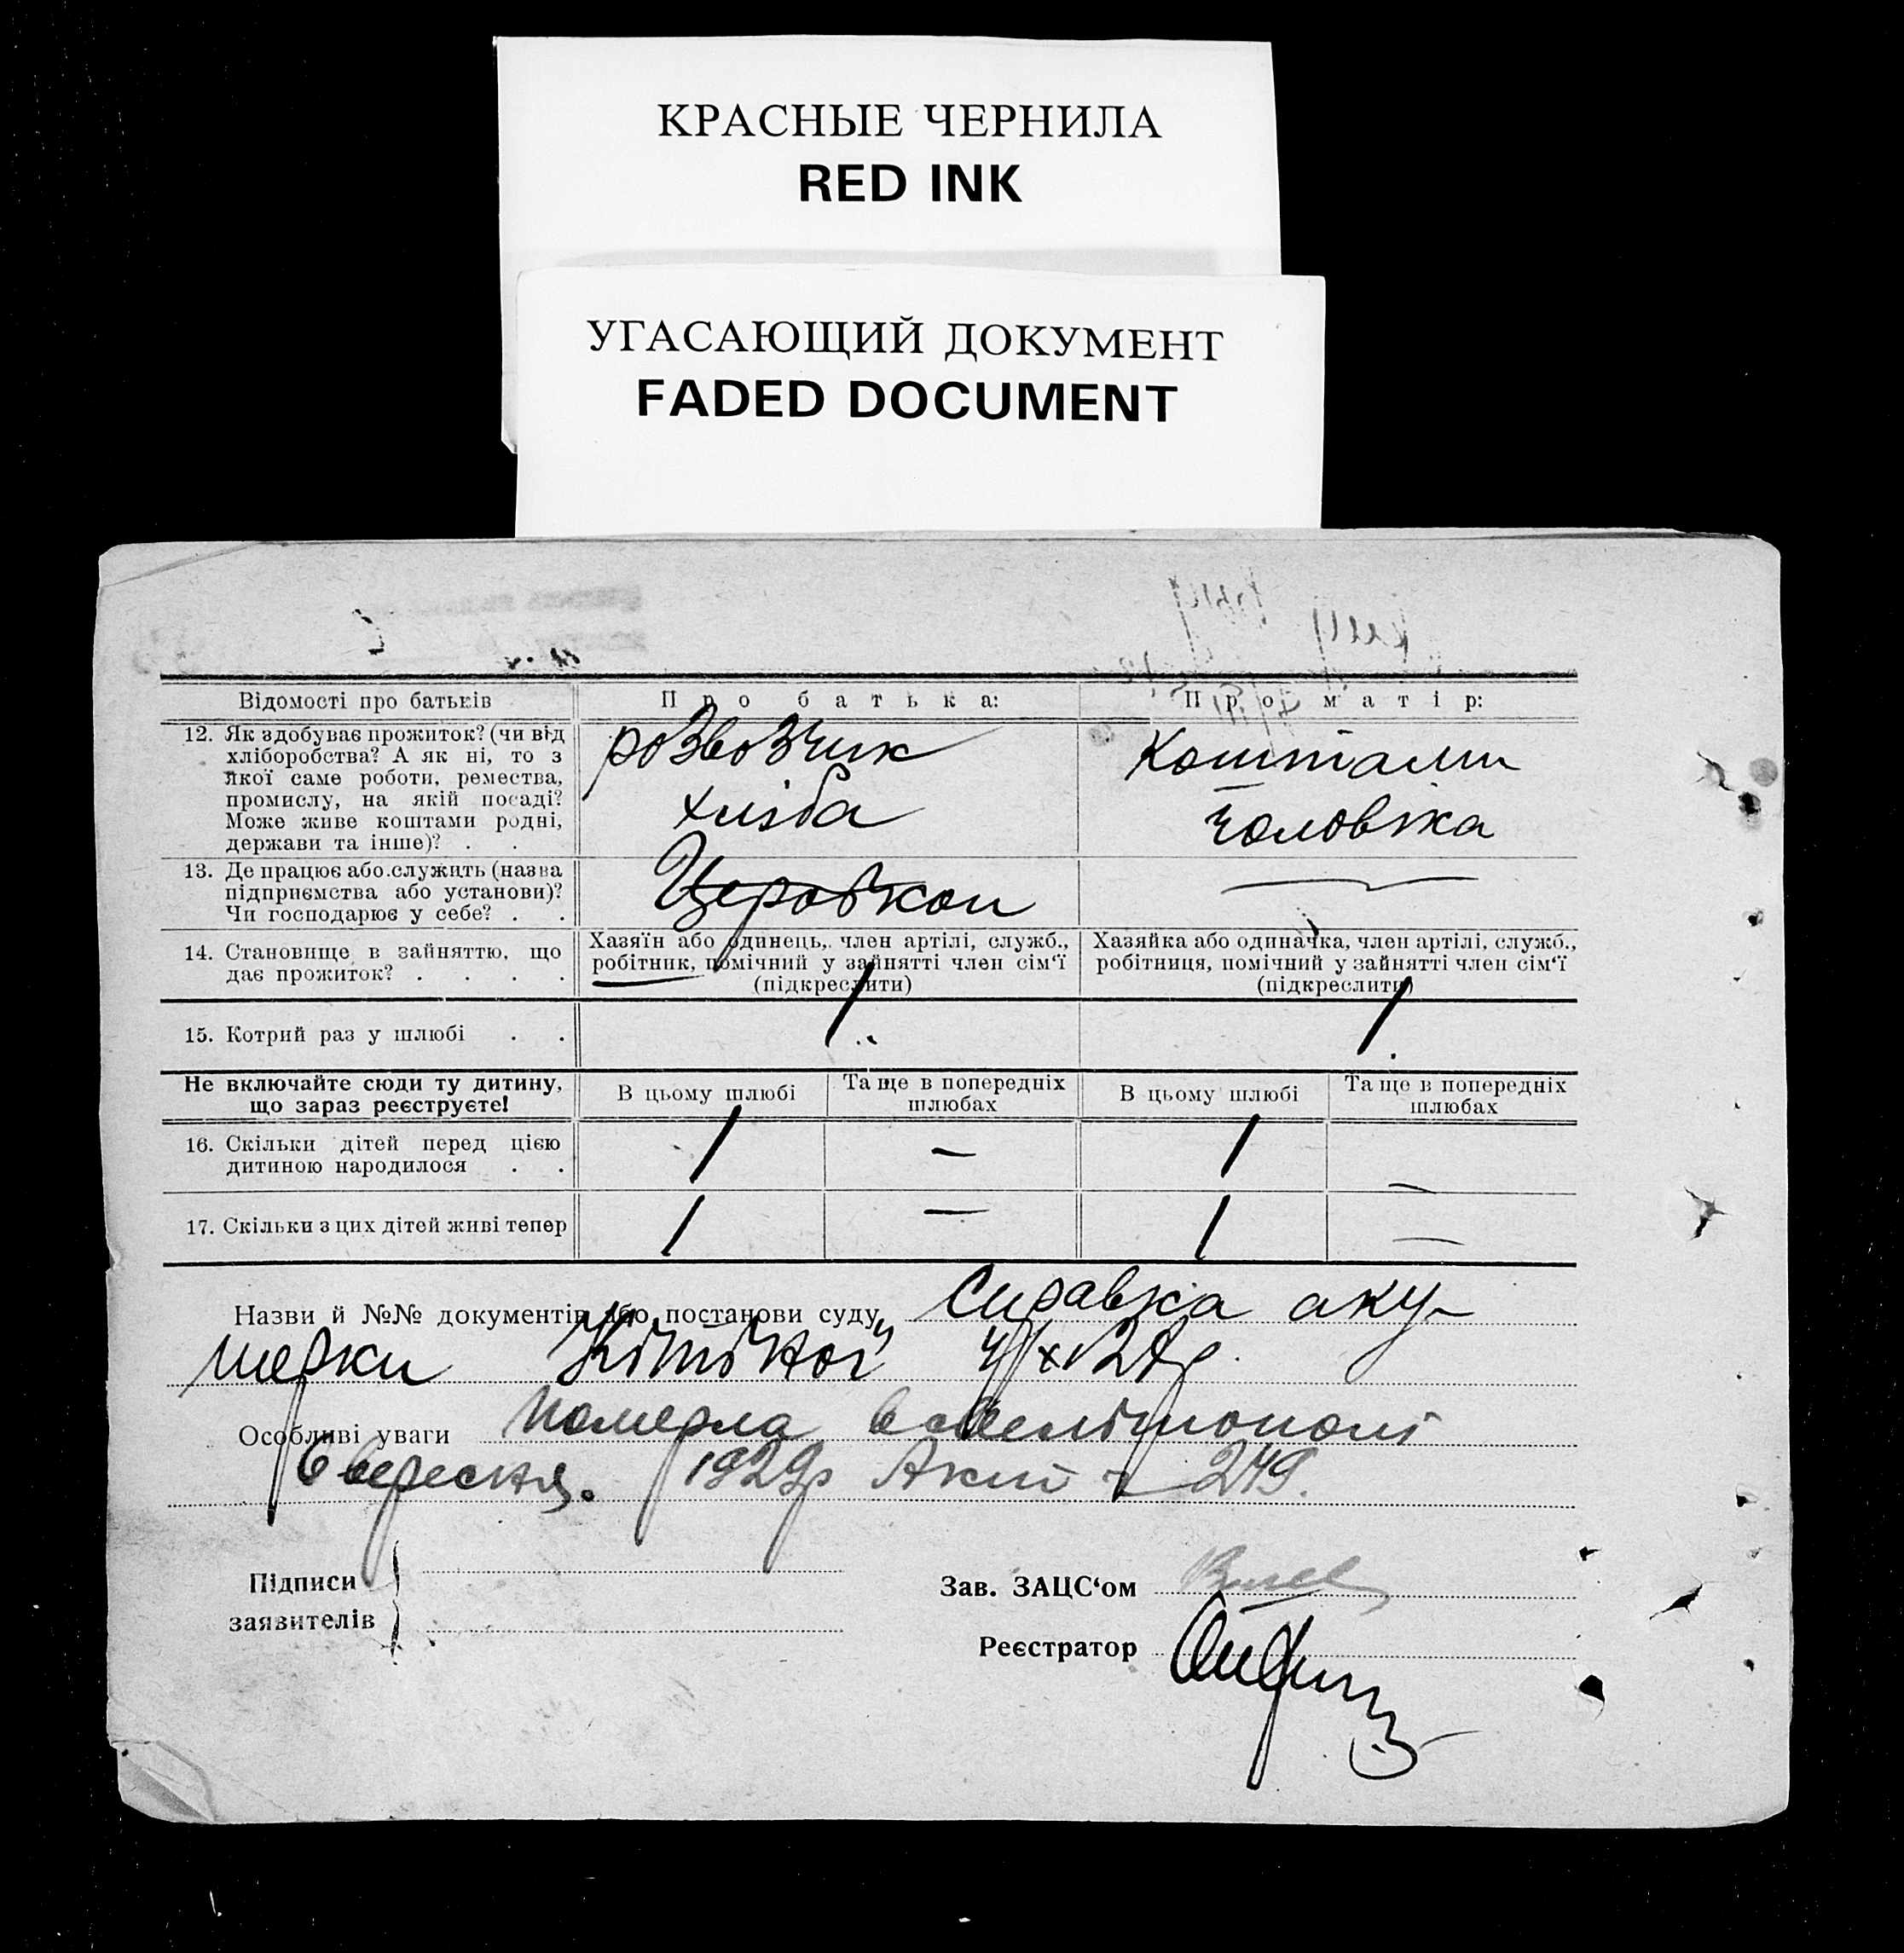 КРАСНЫЕ ЧЕРНИЛА
RED INK
УГАСАЮЩИЙ ДОКУМЕНТ
FADED DOCUMENT
Відомості про батьків
Про батька:
Про матір:
12. Як здобуває прожиток? (чи від
хліборобства? А як ні, то з
якої саме роботи, ремества,
промислу, на якій посаді?
Може живе коштами родні,
держави та інше)? . .
розвозчик
хліба
Коштами
чоловіка
13. Де працює або служить (назва
підприємства або установи)?
Чи господарює у себе? . .
Церобкоп
—
14. Становище в зайняттю, що
дає прожиток? . . . .
Хазяїн або одинець, член артілі, служб.,
робітник, помічний у зайнятті член сім‘ї
(підкреслити)
Хазяйка або одиначка, член артілі, служб.,
робітниця, помічний у зайнятті член сім‘ї
(підкреслити)
15. Котрий раз у шлюбі . .
1
1
Не включайте сюди ту дитину,
що зараз реєструєте!
В цьому шлюбі
Та ще в попередніх
шлюбах
В цьому шлюбі
Та ще в попередніх
шлюбах
16. Скільки дітей перед цією
дитиною народилося . .
1 — 1 —
17. Скільки з цих дітей живі тепер
1 — 1 —
Назви й №№ документів або постанови суду, Справка аку-
шерки
Особливі уваги померла в Мелітополі
6 вересня. 1929р Акт ч 249.
Підписи
заявителів
Зав. ЗАЦС‘ом
Реєстратор